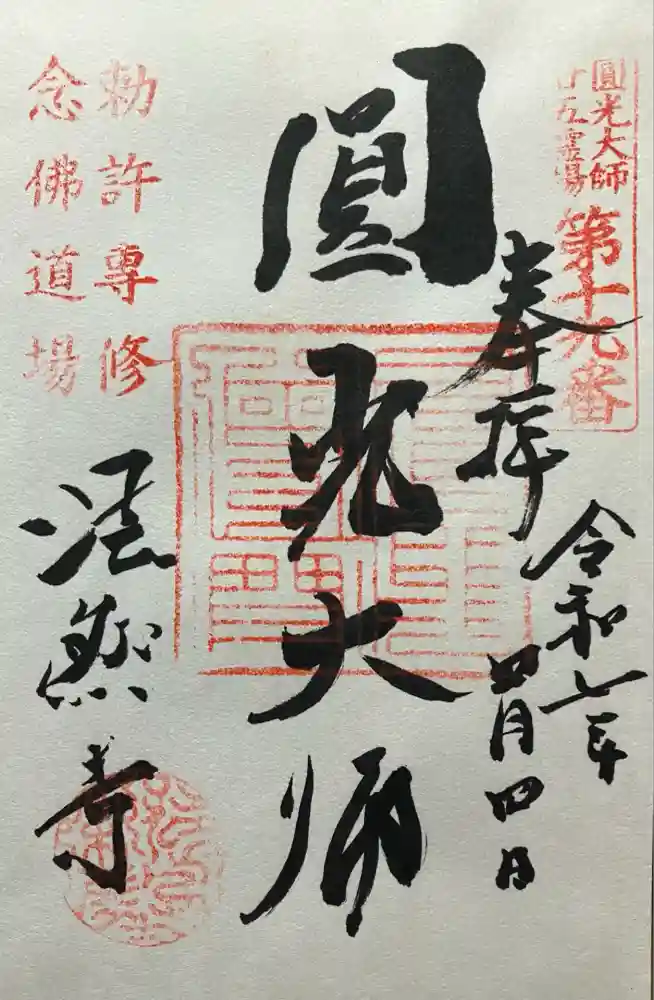 圓光大師
廿五霊場
第十九番
奉拝
令和七年
四月四日
圓光大師
勅許專修
念佛道場
法然寺